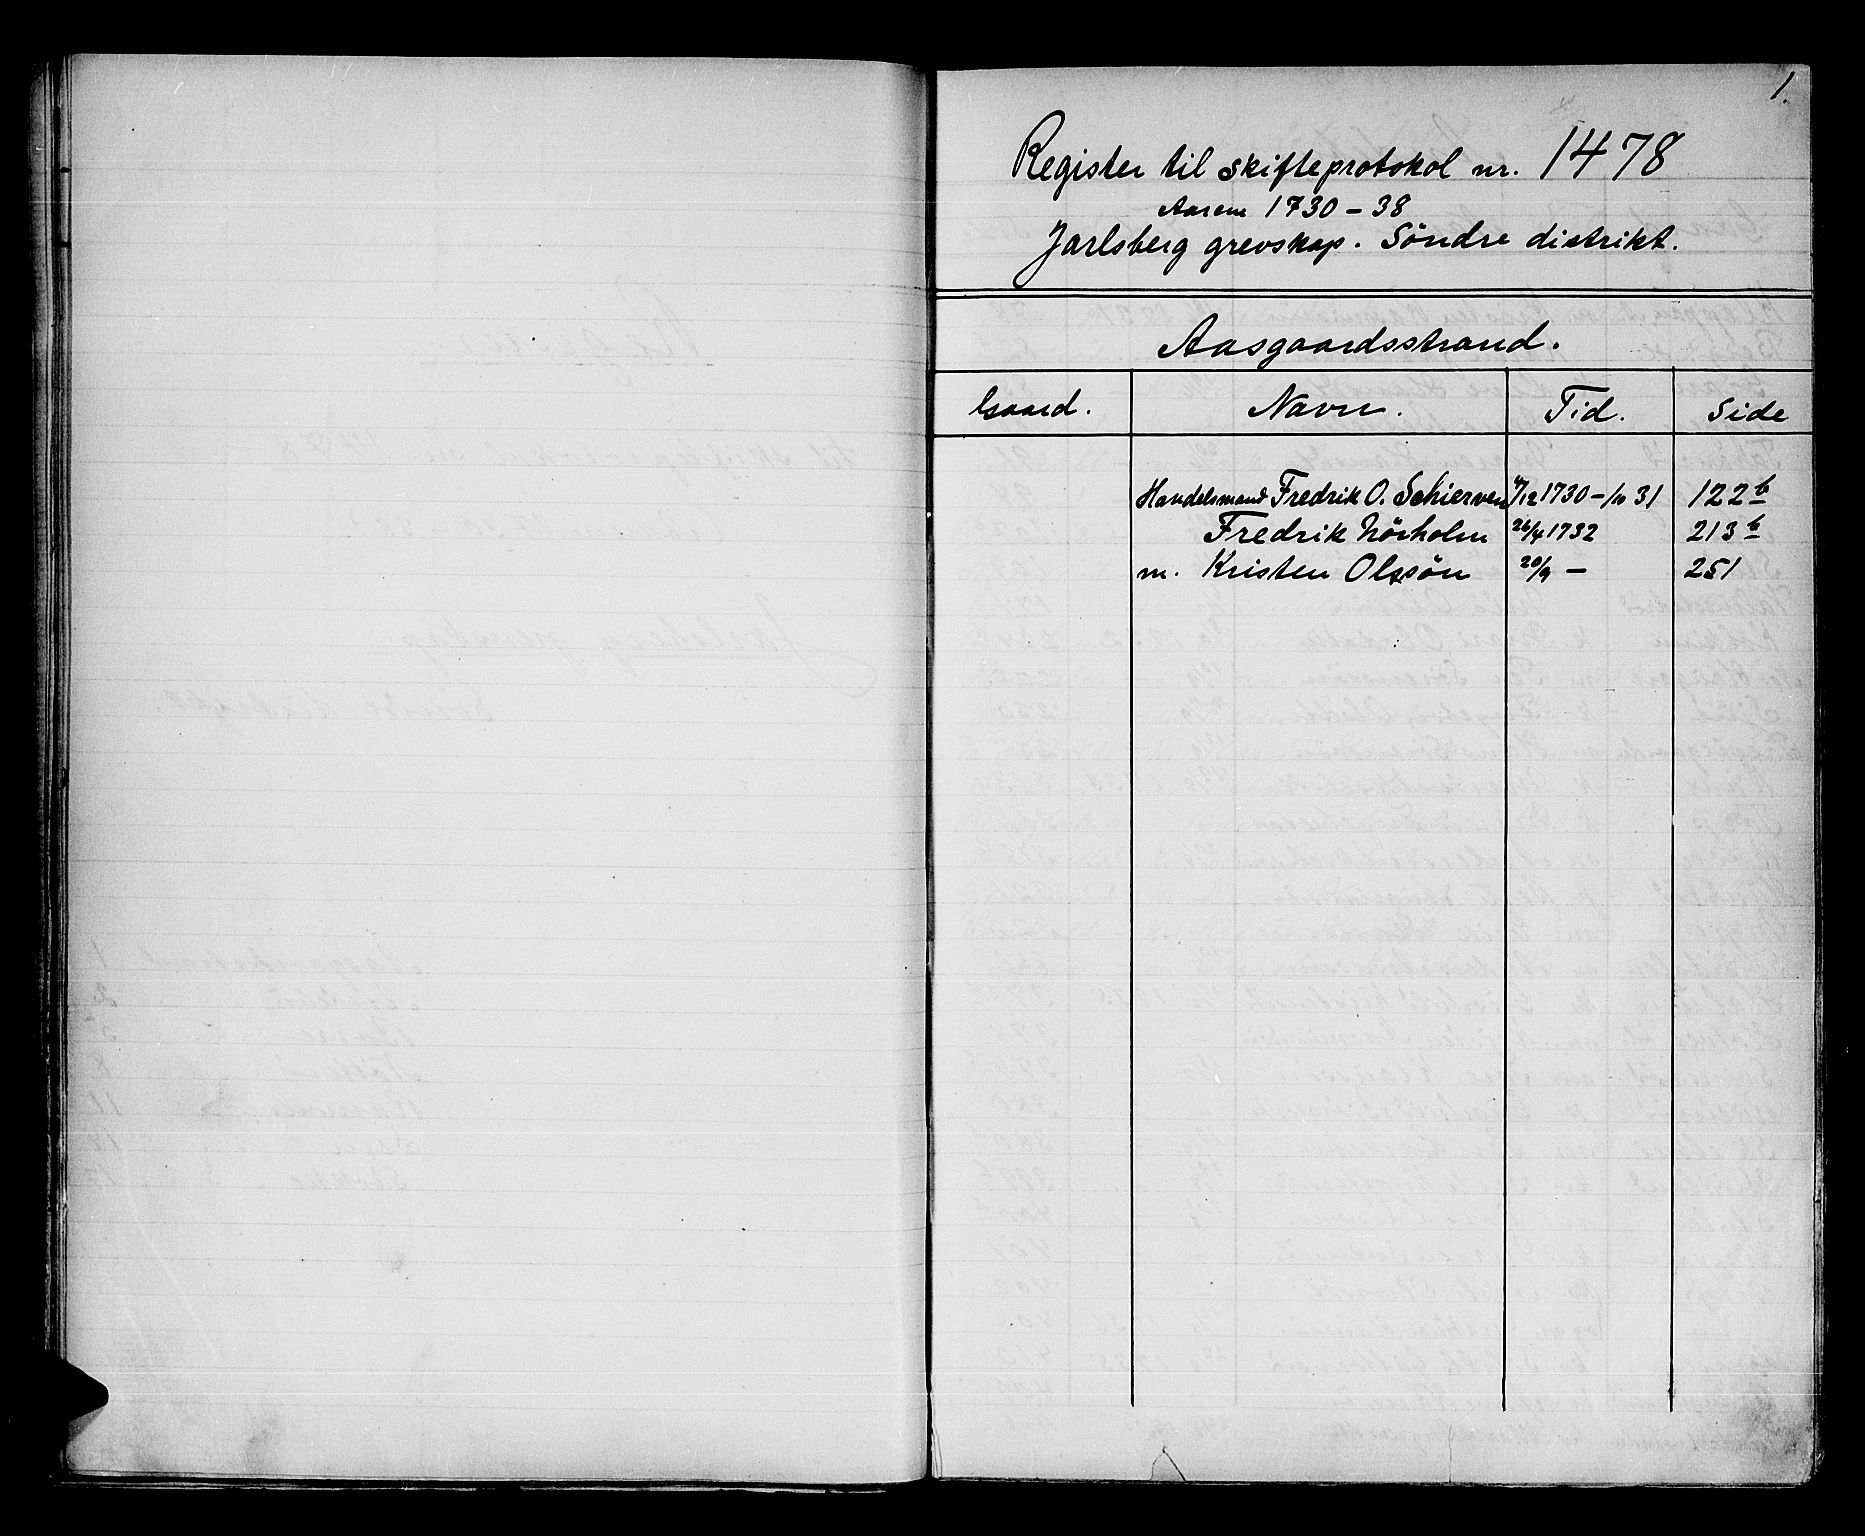 1.
Register til skifteprotokol nr. 1478
Aarene 1730 – 38
Jarlsberg grevskap. Söndre distrikt.
Aasgaardsstrand.
Gaard. Navn. Tid. Side
Handelsmand Fredrik O. Schierven 1730 – 31 122b
Fredrik Nörholm 26/4 1732 213b
m. Kristen Olssön 20/9 – 251